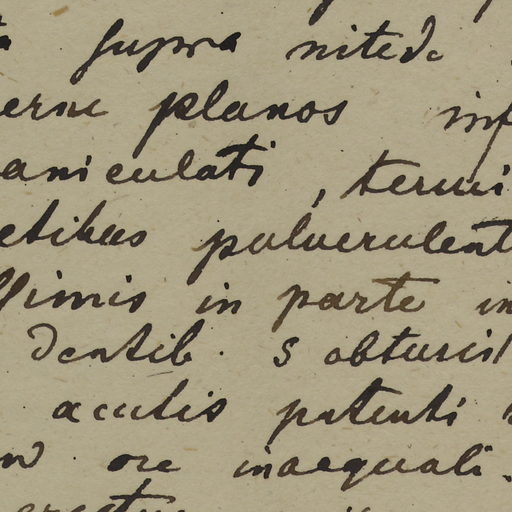 supra nitide
erne planos inf
aniculati, termi
etibus pulverulent
ssimis in parte in
dentib. 5 obtusis
acutis patenti
ore inaequali.
erectus